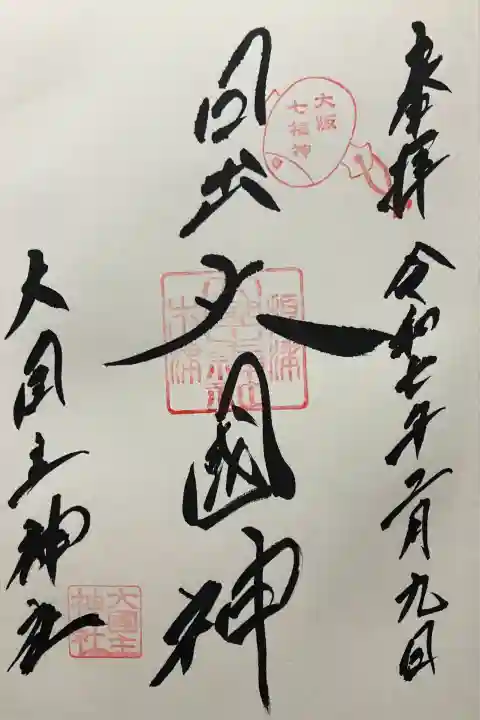 奉拝
令和七年二月九日
大阪
七福神
日出大國神
大国主神社
大國主
神社